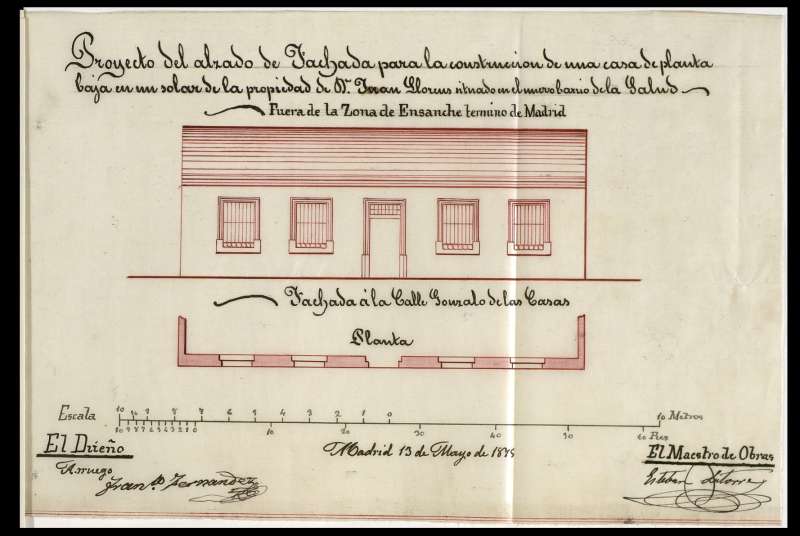 Proyecto del alzado de Fachada para la construccion de una casa de planta
baja en un solar de la propiedad de Dn. Juan Llorens situado en el nuevo barrio de la Salud
Fuera de la Zona de Ensanche termino de Madrid
Fachada á la Calle Gonzalo de las Casas
Planta
Escala 10 9 8 7 6 5 4 3 2 1 0 10 Metros
10 9 8 7 6 5 4 3 2 1 0 10 20 30 40 50 60 Pies
El Dueño
Madrid 13 de Mayo de 1875
El Maestro de Obras
A ruego
Franco. Fernandez
Esteban Latorre